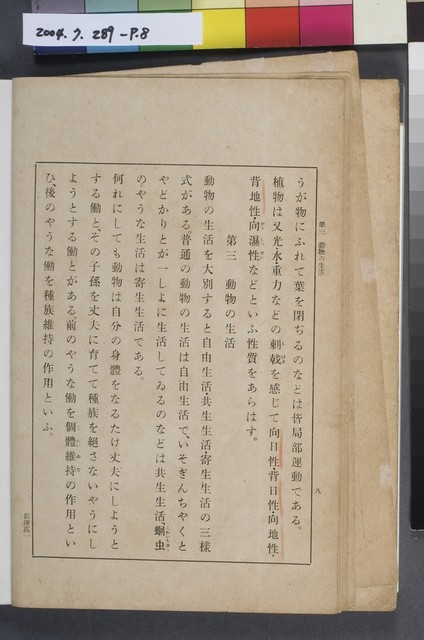 2004.7.289-P.8
第三 動物の生活
八
うが物にふれて葉を閉ぢるのなどは皆局部運動である。
植物は又光・水・重力などの刺戟を感じて向日性・背日性・向地性・
背地性・向濕性などといふ性質をあらはす。
第三 動物の生活
動物の生活を大別すると自由生活・共生生活・寄生生活の三樣
式がある。普通の動物の生活は自由生活で、いそぎんちやくと
やどかりとが一しよに生活してゐるのなどは共生生活、蛔虫
のやうな生活は寄生生活である。
何れにしても動物は自分の身體をなるたけ丈夫にしようと
する働と、その子孫を丈夫に育てて種族を絕さないやうにし
ようとする働とがある。前のやうな働を個體維持の作用とい
ひ、後のやうな働を種族維持の作用といふ。